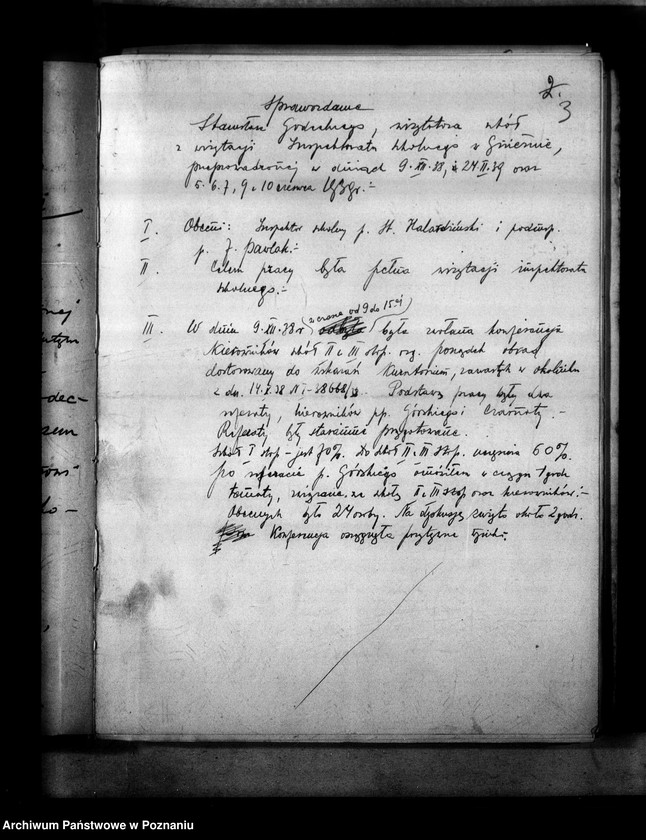 2.
3
Sprawozdanie
Stanisława Godeckiego, wizytatora szkół
z wizytacji Inspektoratu szkolnego w Gnieźnie,
przeprowadzonej w dniach 9.XII.38, i 24.II.39 oraz
5. 6. 7, 9 i 10 czerwca 1939r.-
I. Obecni: Inspektor szkolny p. St. i podinsp.
p. J. Pawlak.-
II. Celem pracy była pełna wizytacji inspektoratu
szkolnego.-
w czasie od 9 do 15-ej
III. W dniu 9.XII.38 r była zwołana konferencja
Kierowników szkół II i III stop. org. porządek obrad
dostosowany do wskazań Kuratorium, zawartych w okólniku
z dn. 14.X.38 Podstawą pracy były dwa
referaty, kierowników pp. Górskiego i Czarnoty.-
Referaty były starannie przygotowane.
Szkół I stop - jest 70%. Do szkół II i III stop. uczęszcza 60%.
po referacie p. Górskiego omówiłem w ciągu 1 godz
tematy, ze szkoły II i III stop oraz kierowników.-
Obecnych było 24 osoby. Na dyskusję zużyto około 2 godz.
Konferencja osiągnęła pozytywne wyniki.
Archiwum Państwowe w Poznaniu